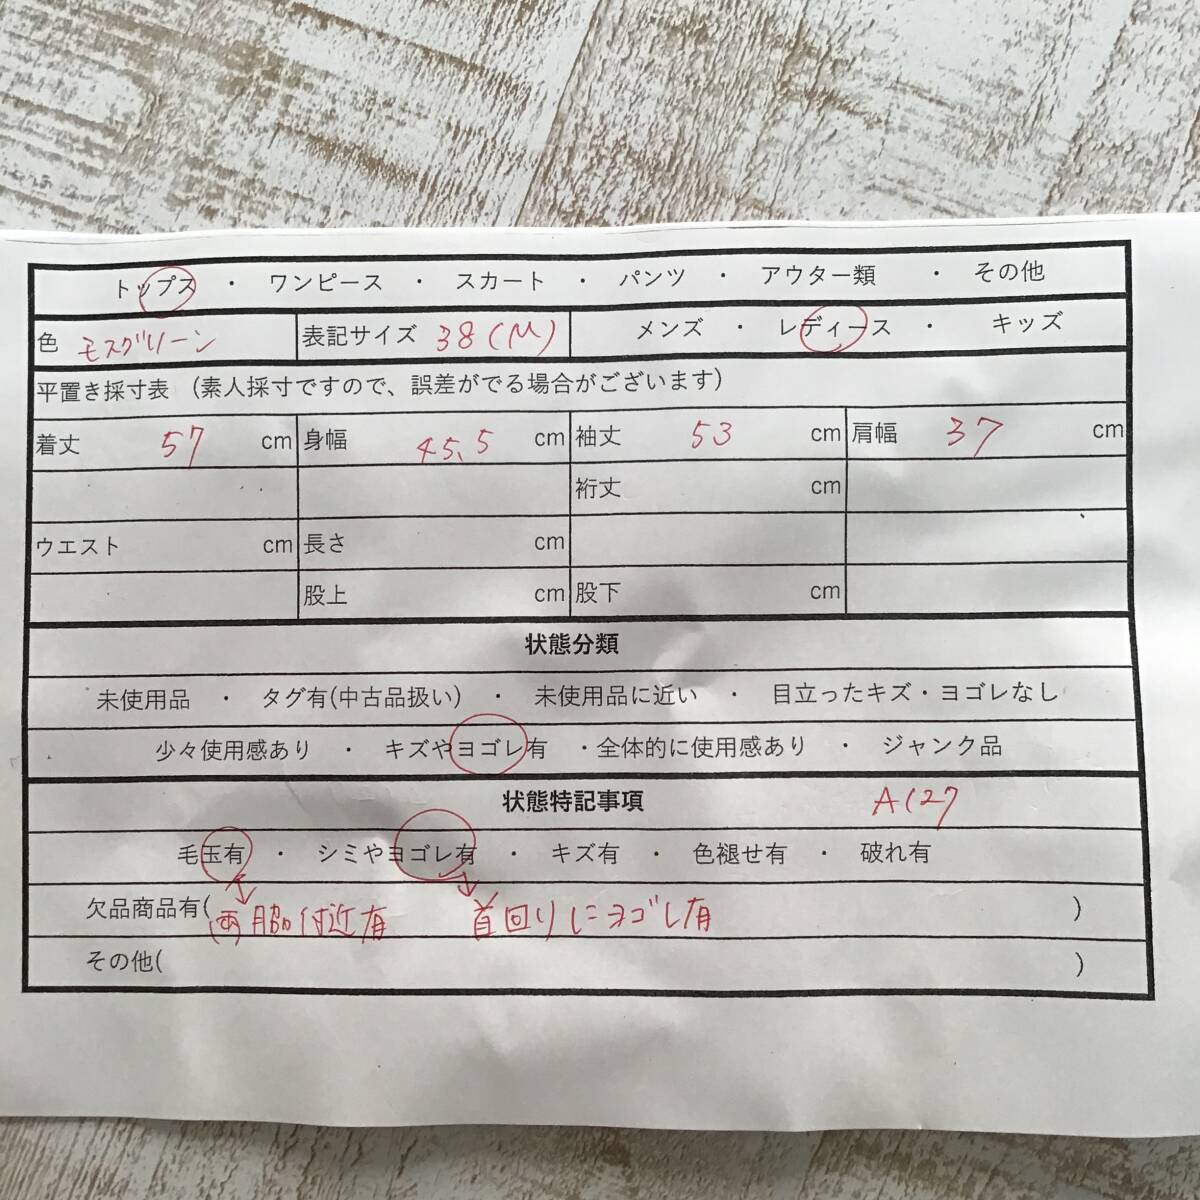 トップス ・ ワンピース ・ スカート ・ パンツ ・ アウター類 ・ その他
色 モスグリーン 表記サイズ 38(M) メンズ ・ レディース ・ キッズ
平置き採寸表 （素人採寸ですので、誤差がでる場合がございます）
着丈 57 cm 身幅 45.5 cm 袖丈 53 cm 肩幅 37 cm
裄丈 cm
ウエスト cm 長さ cm
股上 cm 股下 cm
状態分類
未使用品 ・ タグ有(中古品扱い) ・ 未使用品に近い ・ 目立ったキズ・ヨゴレなし
少々使用感あり ・ キズやヨゴレ有 ・全体的に使用感あり ・ ジャンク品
状態特記事項 A127
毛玉有 ・ シミやヨゴレ有 ・ キズ有 ・ 色褪せ有 ・ 破れ有
欠品商品有( 両脇付近有 首回りにヨゴレ有 )
その他( )